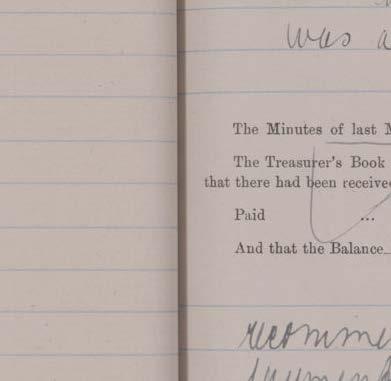 was a
The Minutes of last M
The Treasurer's Book
that there had been received
Paid ...
And that the Balance
recomme